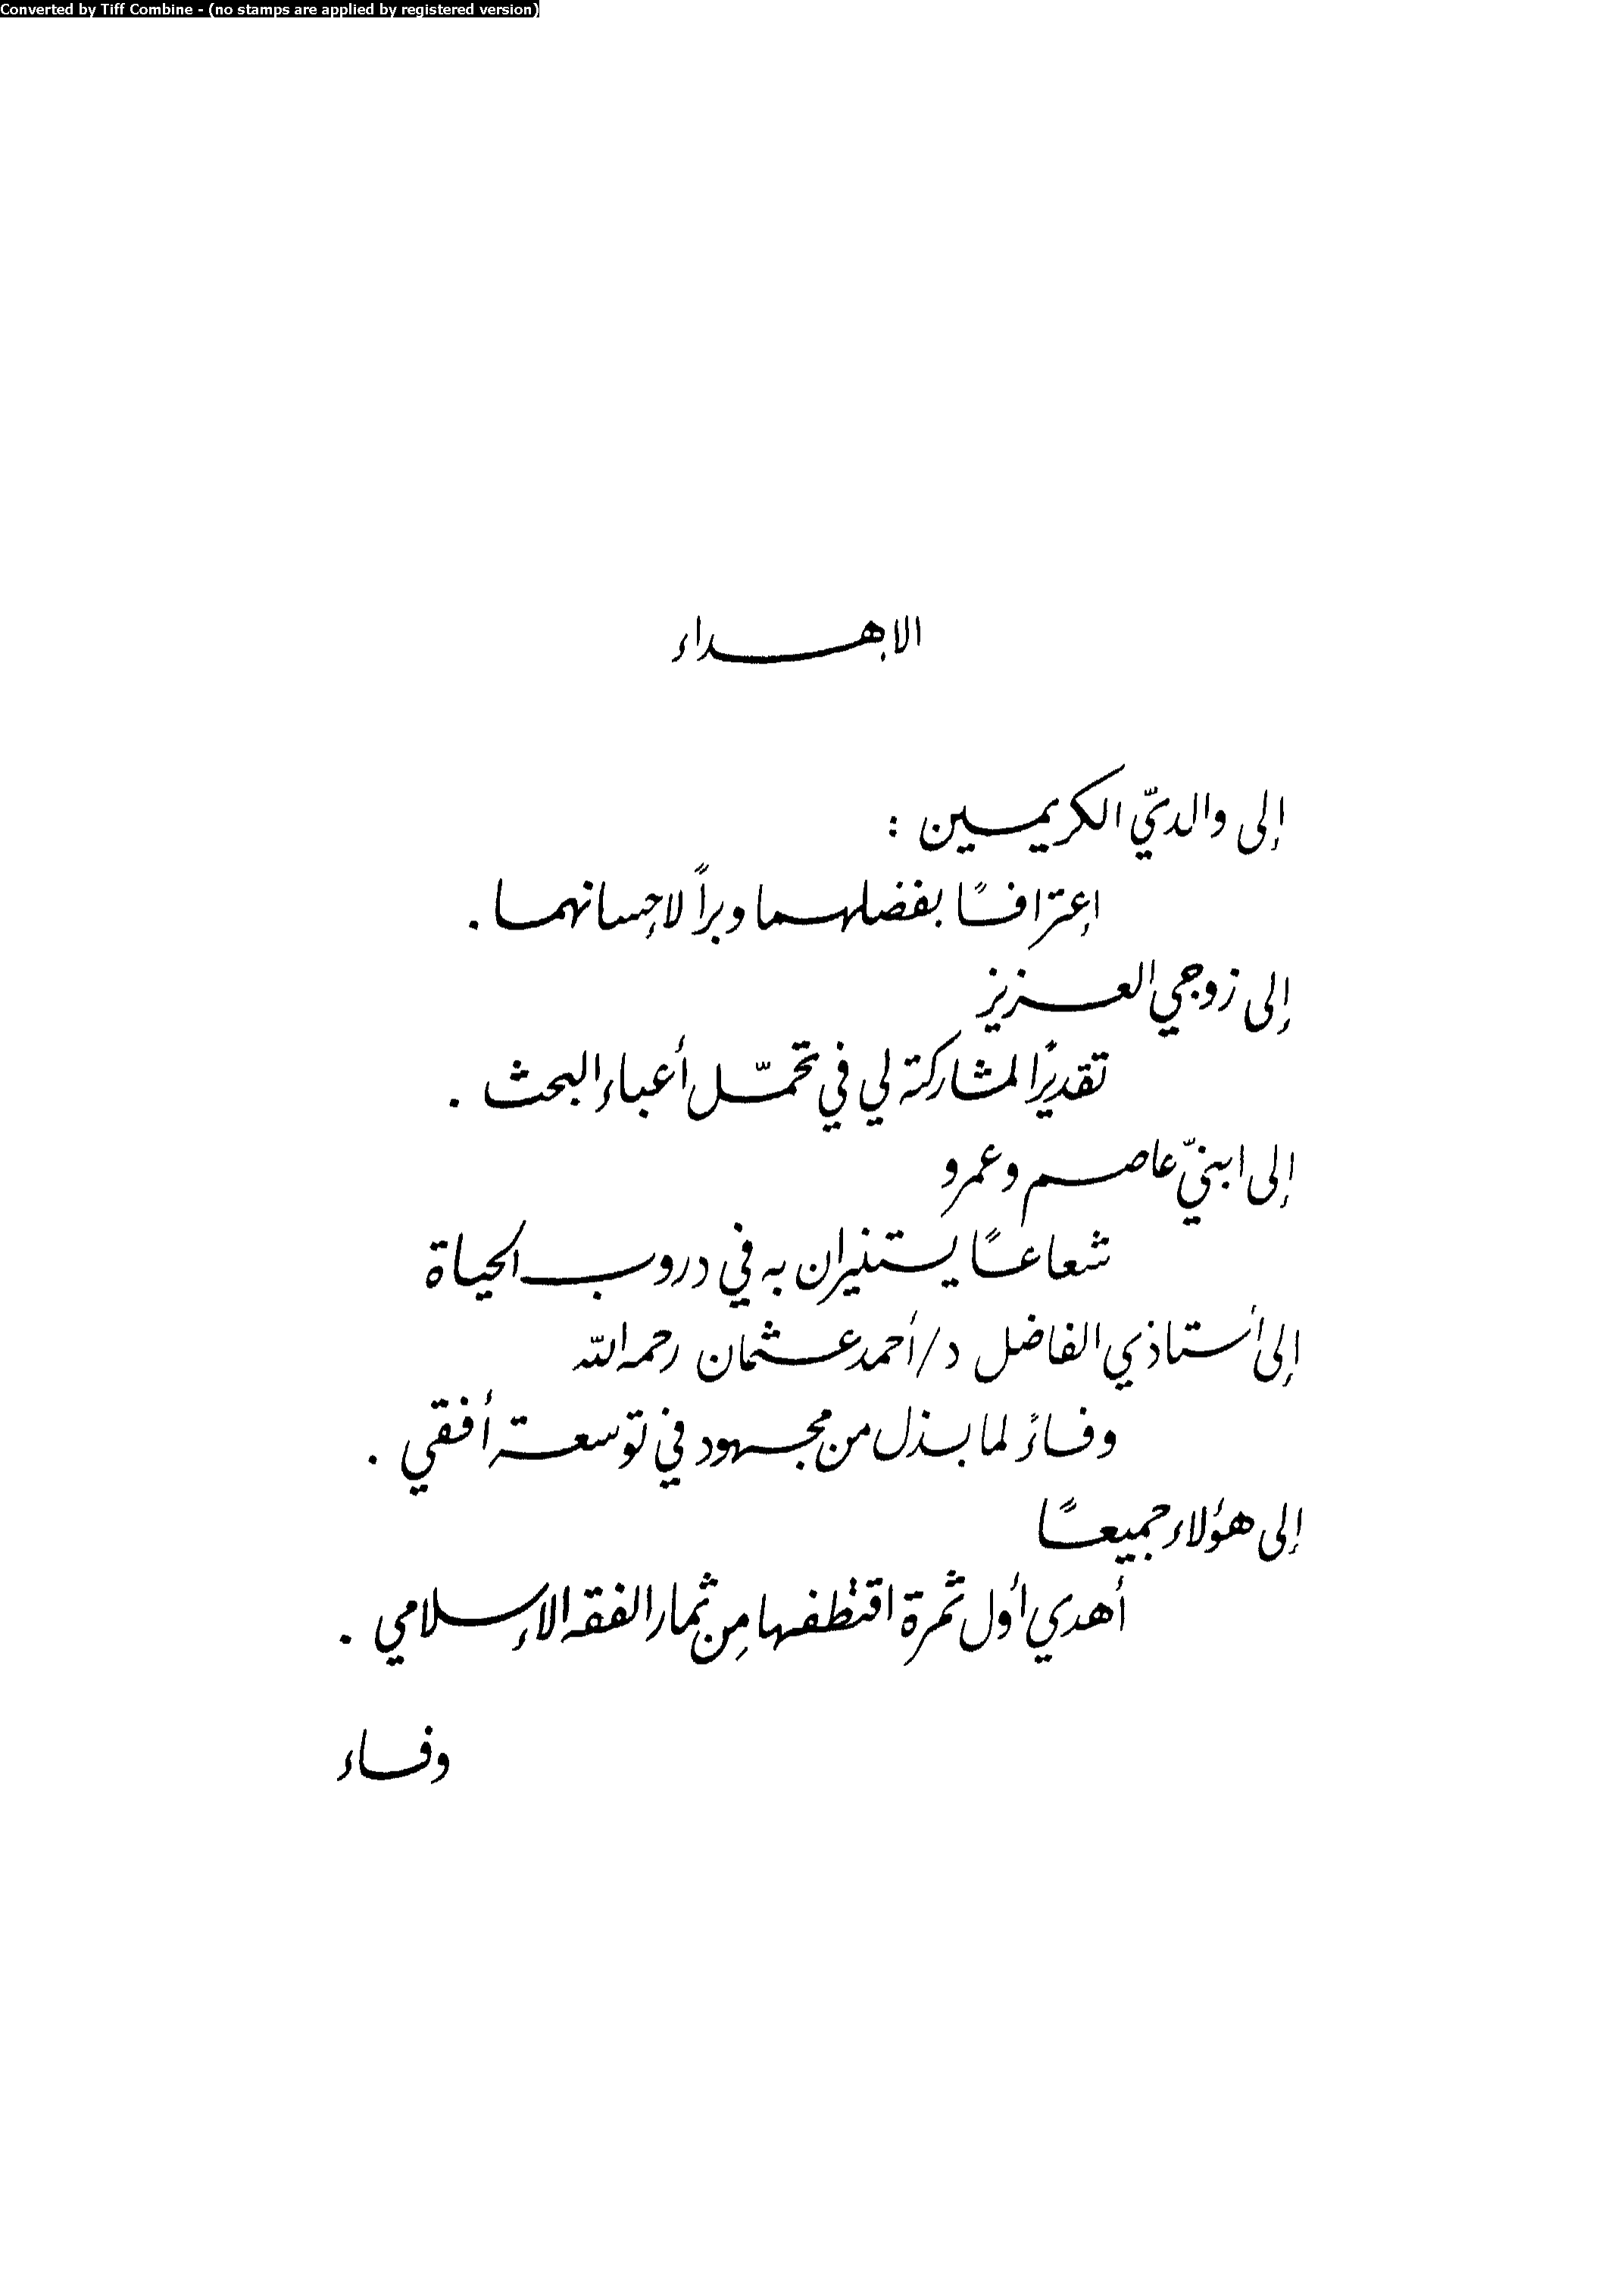 Converted by Tiff Combine - (no stamps are applied by registered version)
الإهداء
إلى والديّ الكريمين :
إعترافًا بفضلهما وبراً لإحسانهما .
إلى زوجي العزيز
تقديرًا لمشاركته لي في تحمّل أعباء البحث .
إلى ابنيّ عاصم وعمرو
شعاعًا يستنيران به في دروب الحياة
إلى أستاذي الفاضل د/أحمد عثمان رحمه الله
وفاءً لما بذل من مجهود في توسعة أفقي .
إلى هؤلاء جميعًا
أهدي أول ثمرة اقتطفها من ثمار الفقه الإسلامي .
وفاء